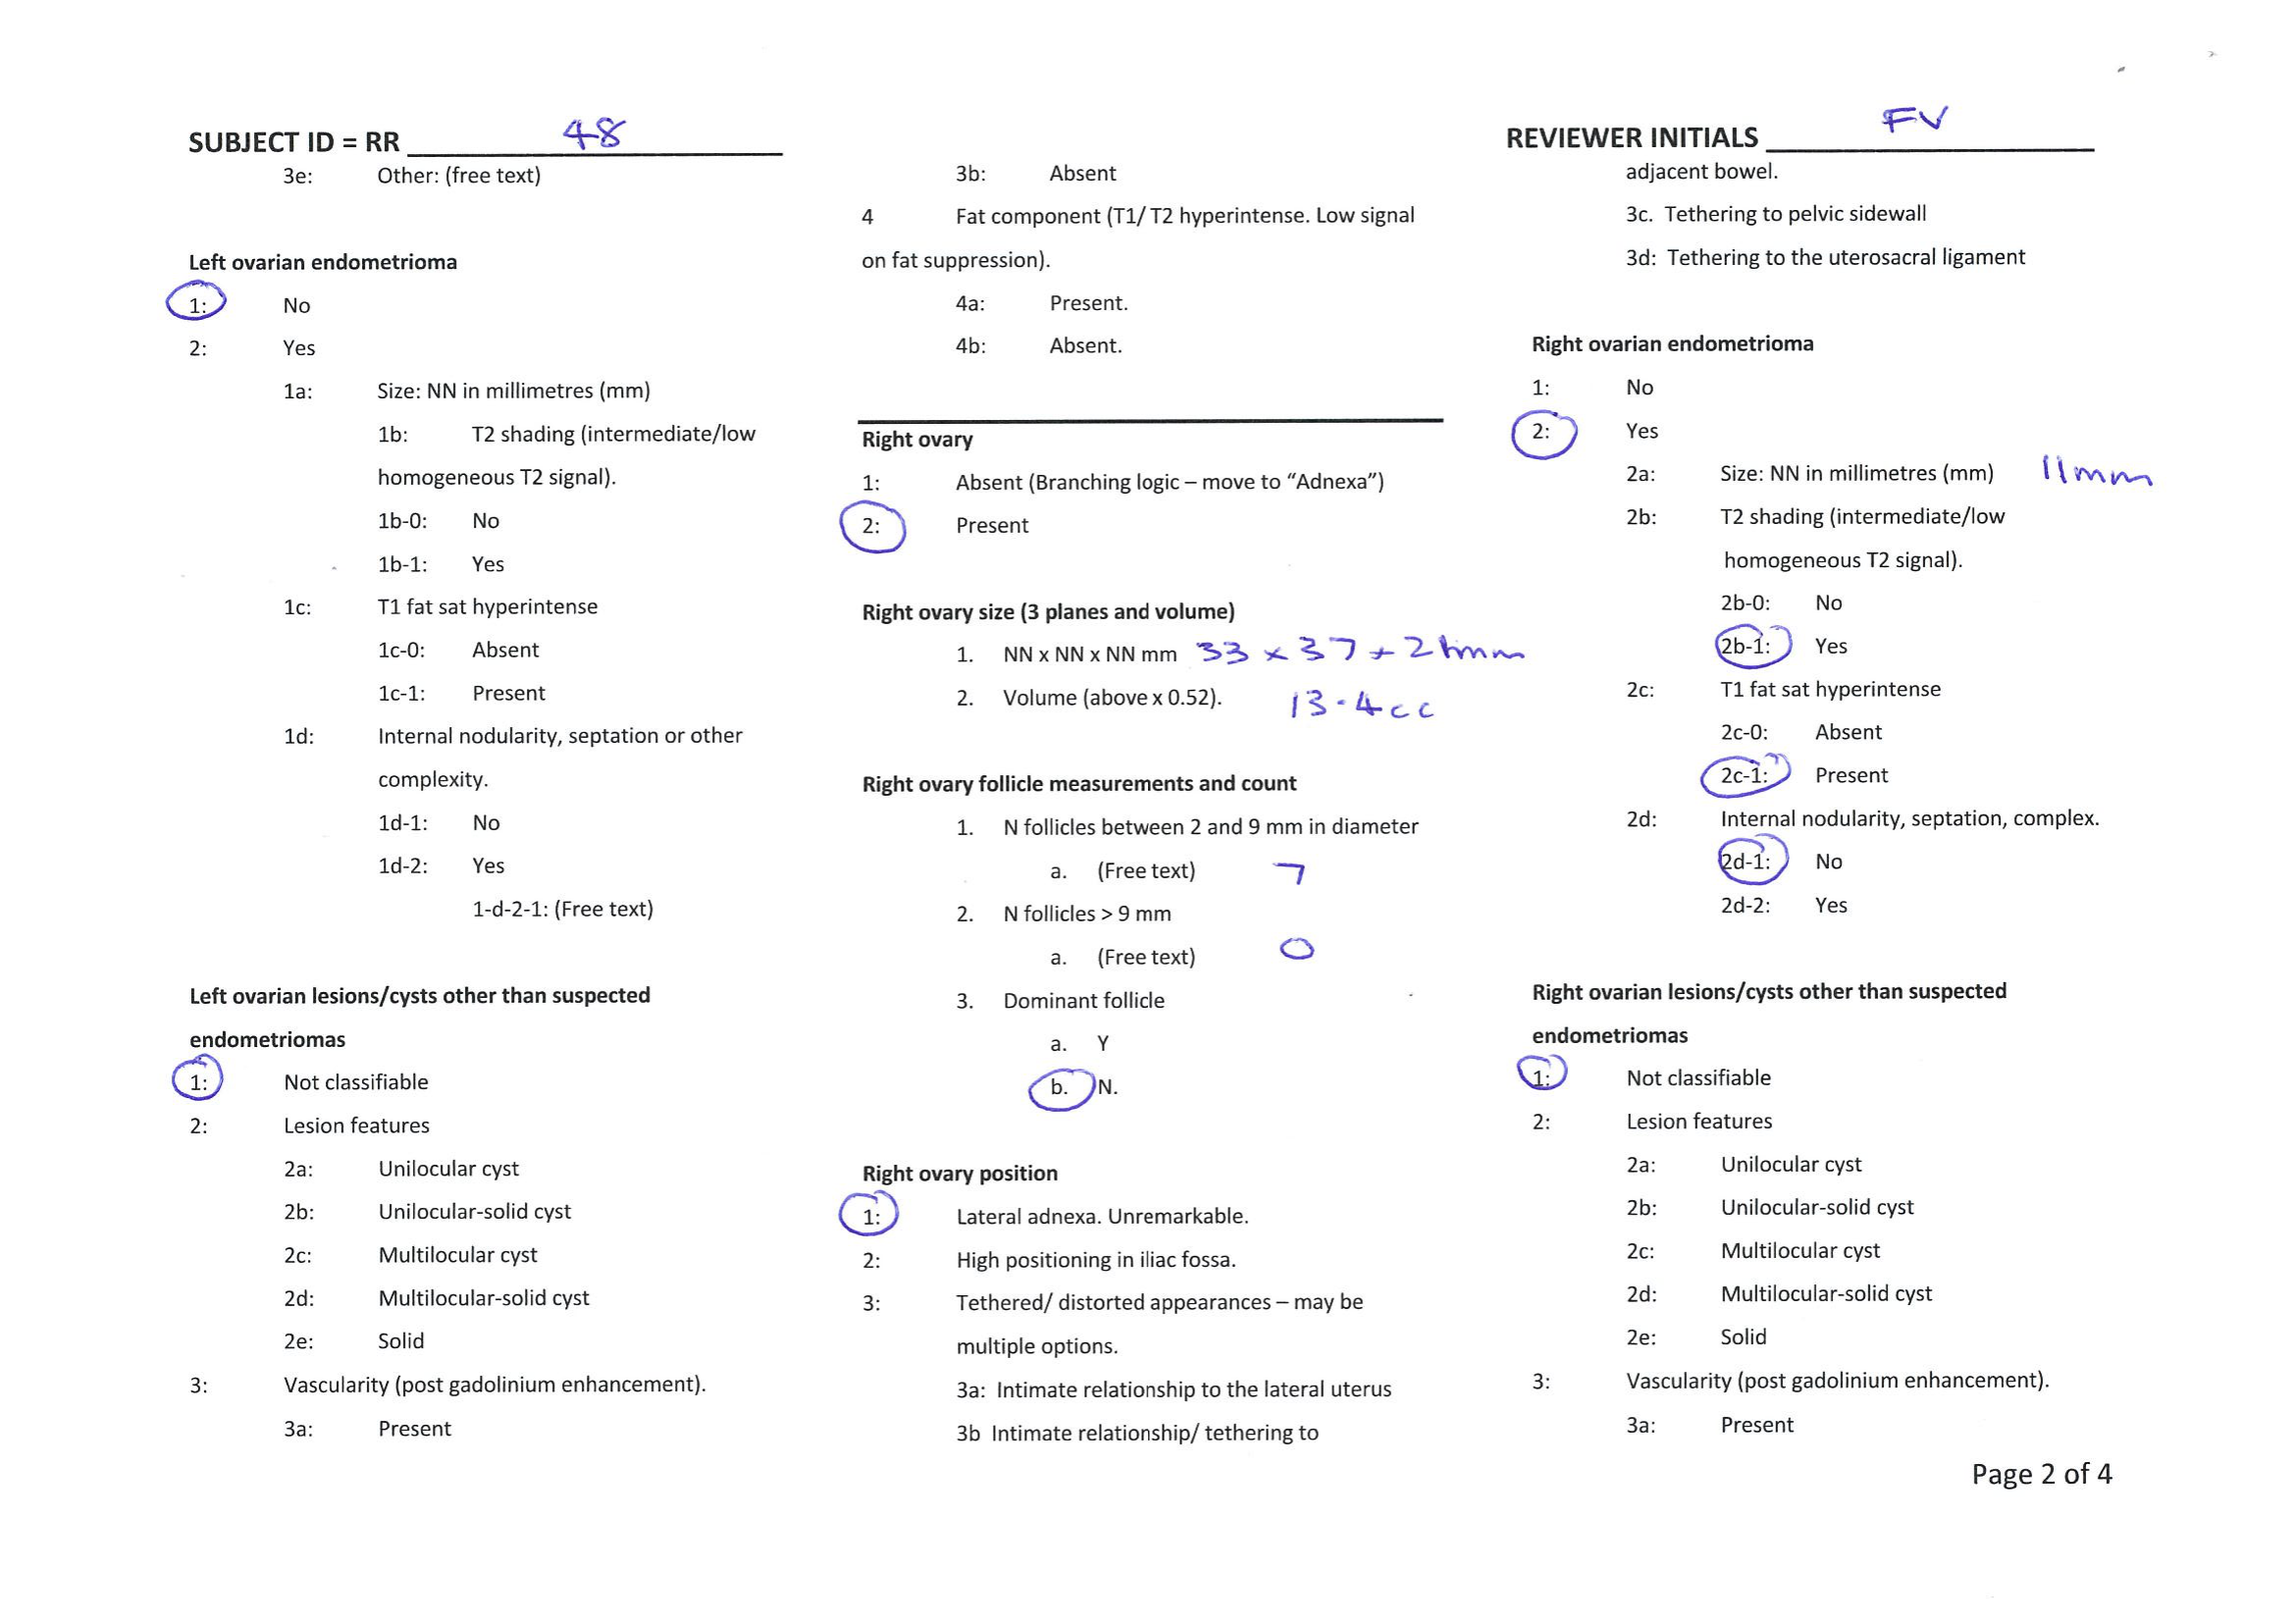 SUBJECT ID = RR 48
3e: Other: (free text)
Left ovarian endometrioma
1: No
2: Yes
1a: Size: NN in millimetres (mm)
1b: T2 shading (intermediate/low
homogeneous T2 signal).
1b-0: No
1b-1: Yes
1c: T1 fat sat hyperintense
1c-0: Absent
1c-1: Present
1d: Internal nodularity, septation or other
complexity.
1d-1: No
1d-2: Yes
1-d-2-1: (Free text)
Left ovarian lesions/cysts other than suspected
endometriomas
1: Not classifiable
2: Lesion features
2a: Unilocular cyst
2b: Unilocular-solid cyst
2c: Multilocular cyst
2d: Multilocular-solid cyst
2e: Solid
3: Vascularity (post gadolinium enhancement).
3a: Present
3b: Absent
4 Fat component (T1/ T2 hyperintense. Low signal
on fat suppression).
4a: Present.
4b: Absent.
Right ovary
1: Absent (Branching logic – move to “Adnexa”)
2: Present
Right ovary size (3 planes and volume)
1. NN x NN x NN mm 33 x 37 x 21mm
2. Volume (above x 0.52). 13.4cc
Right ovary follicle measurements and count
1. N follicles between 2 and 9 mm in diameter
a. (Free text) 7
2. N follicles > 9 mm
a. (Free text) 0
3. Dominant follicle
a. Y
b. N.
Right ovary position
1: Lateral adnexa. Unremarkable.
2: High positioning in iliac fossa.
3: Tethered/ distorted appearances – may be
multiple options.
3a: Intimate relationship to the lateral uterus
3b Intimate relationship/ tethering to
REVIEWER INITIALS FV
adjacent bowel.
3c. Tethering to pelvic sidewall
3d: Tethering to the uterosacral ligament
Right ovarian endometrioma
1: No
2: Yes
2a: Size: NN in millimetres (mm) 11mm
2b: T2 shading (intermediate/low
homogeneous T2 signal).
2b-0: No
2b-1: Yes
2c: T1 fat sat hyperintense
2c-0: Absent
2c-1: Present
2d: Internal nodularity, septation, complex.
2d-1: No
2d-2: Yes
Right ovarian lesions/cysts other than suspected
endometriomas
1: Not classifiable
2: Lesion features
2a: Unilocular cyst
2b: Unilocular-solid cyst
2c: Multilocular cyst
2d: Multilocular-solid cyst
2e: Solid
3: Vascularity (post gadolinium enhancement).
3a: Present
Page 2 of 4